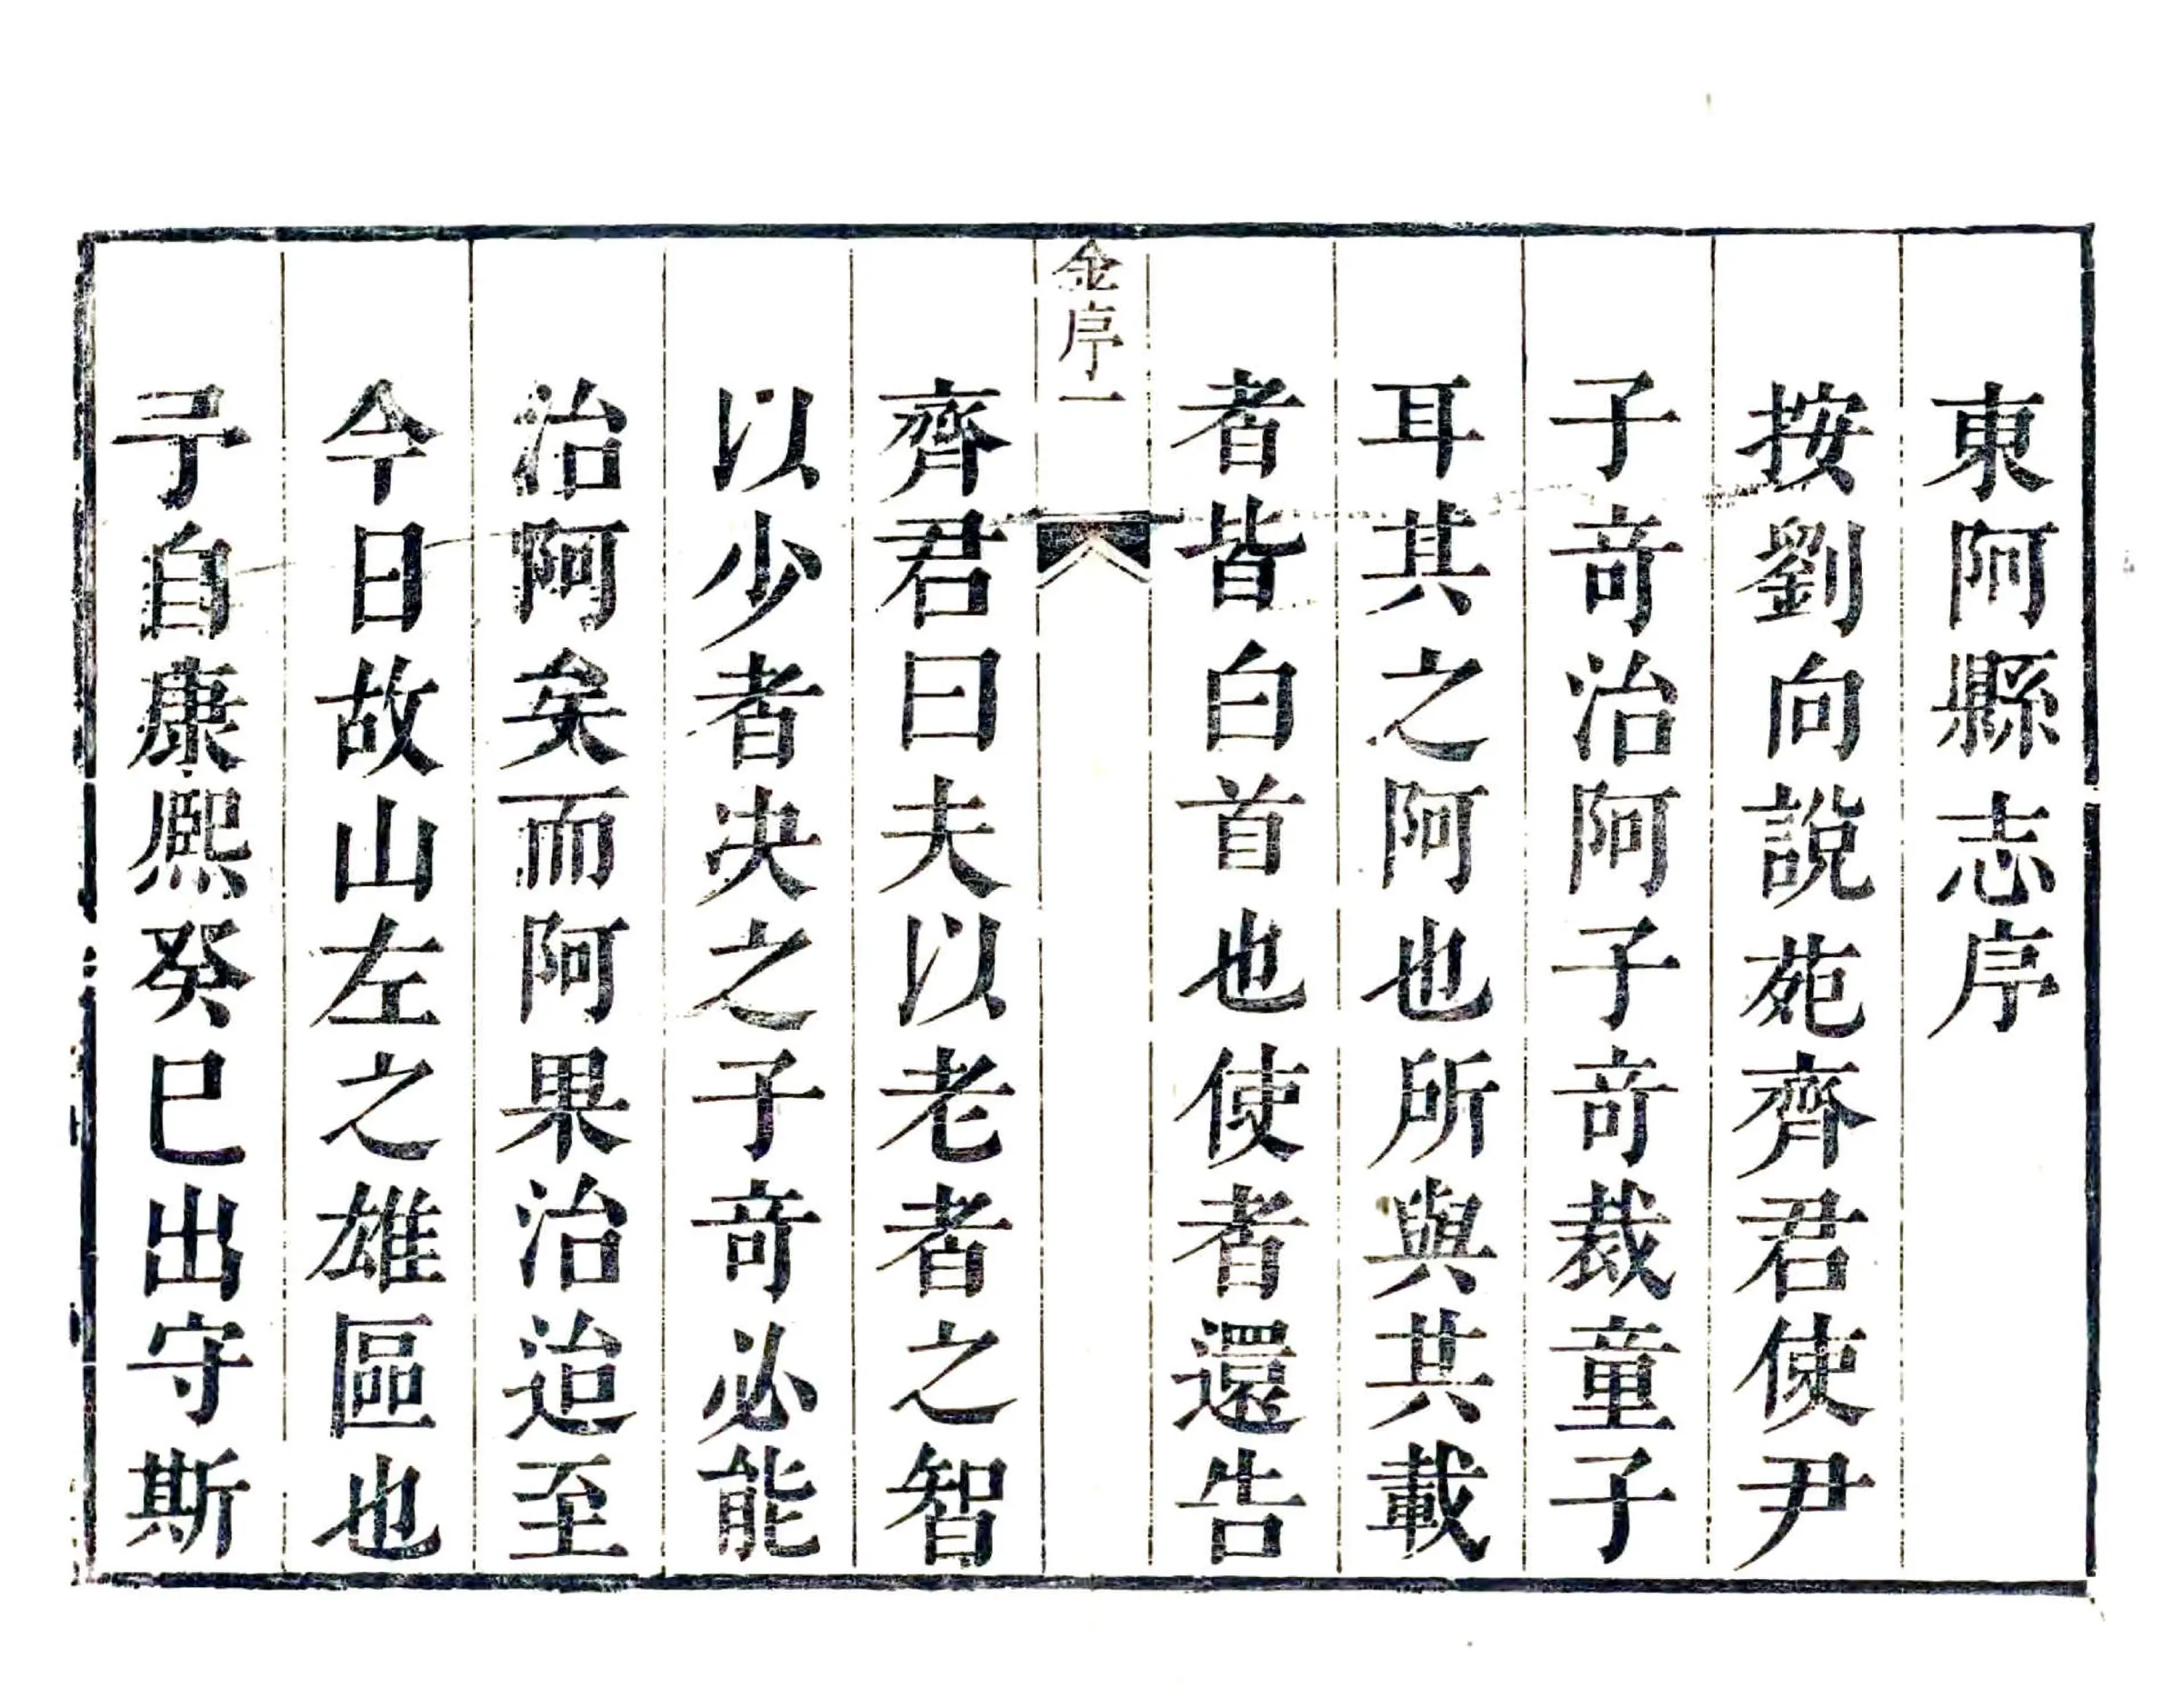 東阿縣志序
按劉向說苑齊君使尹
子竒治阿子竒裁童子
耳其之阿也所與共載
者皆白首也使者還告
金序一
齊君曰夫以老者之智
以少者决之子竒必能
治阿矣而阿果治迨至
今日故山左之雄區也
予自康熙癸巳出守斯